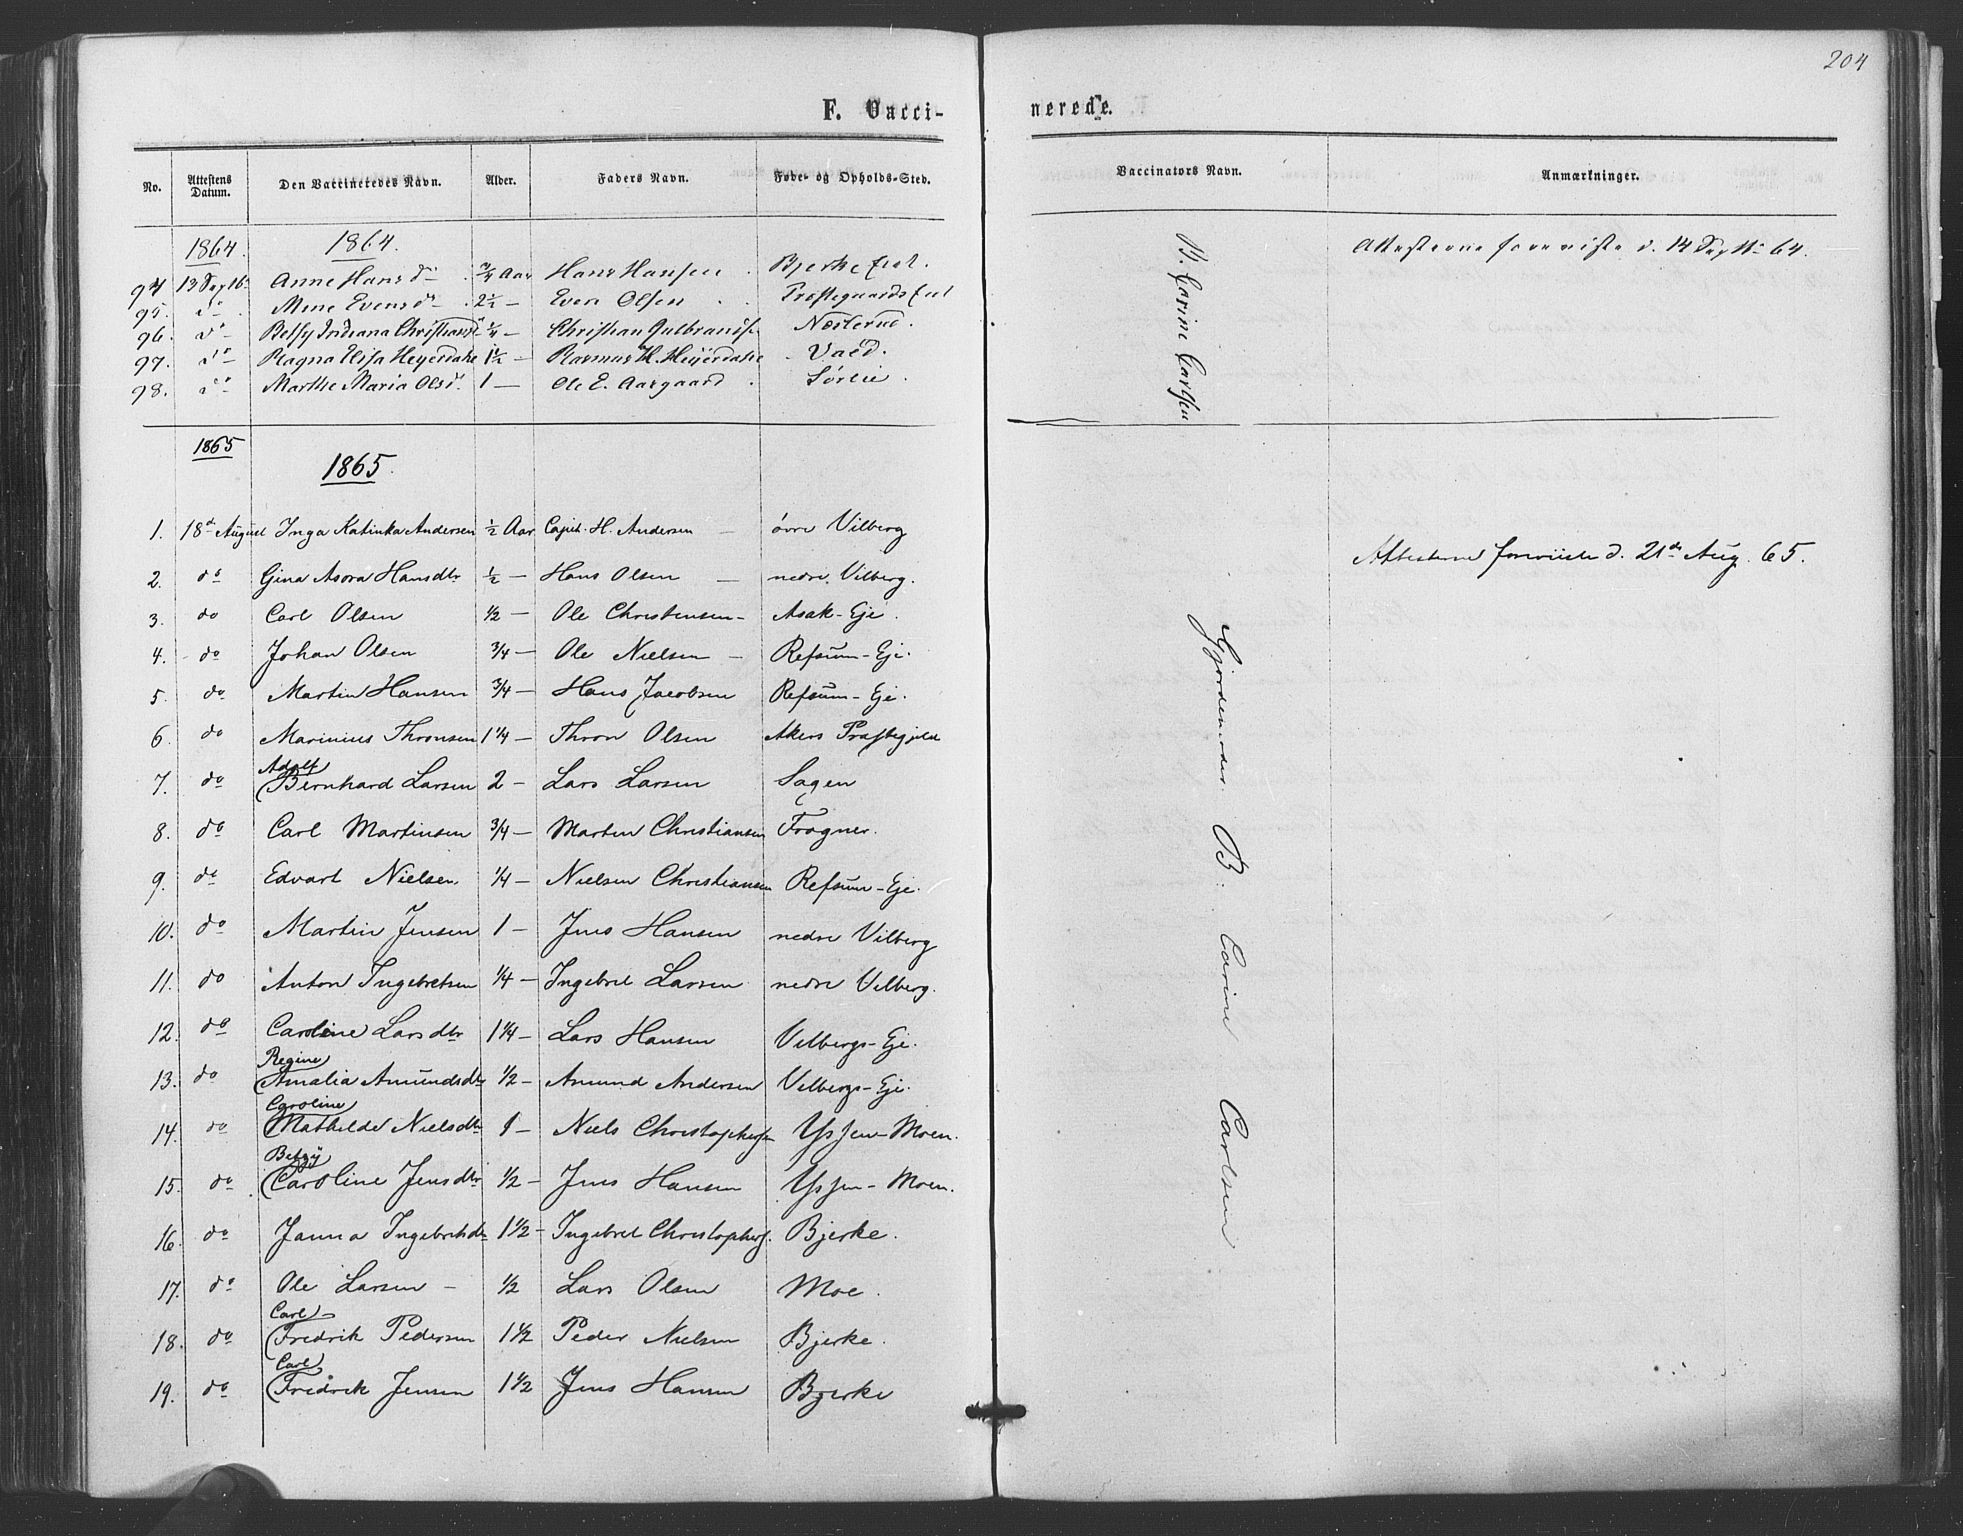 204
F. Vacci-nerede.
No. Attestens Datum. Den Vaccineredes Navn. Alder. Faders Navn. Føde- og Opholds-Sted. Vaccinators Navn. Anmærkninger.
1864. 1864.
94 13 Septb Anne Hansd 3/4 Aar Hans Hansen Bjerke Eiet. Attesterne foreviste d. 14 Septbr 64.
95. do Mine Evensd 2 1/2 — Even Olsen Præstegaards Eiet
96. do Betsy Indiana Christiansd 1/4 — Christian Gulbrands. Næsterud.
97. do Ragna Elisa Heyerdahl 1 1/2 — Rasmus H. Heyerdahl
98. do Marthe Maria Olsd. 1 — Ole E. Aargaard Sørlie.
B. Carine Carlsen
1865 1865.
1. 18de August Inga Katinka Andersen 1/2 Aar Capit. H. Andersen — øvre Vilberg
Attesterne foreviiste d. 21de Aug. 65.
2. do Gina Asora Hansdtr 1/2 — Hans Olsen — nedre Vilberg.
3. do Carl Olsen 1/2 — Ole Christensen — Asak-Eje.
4. do Johan Olsen 3/4 — Ole Nielsen — Refsum-Eje.
5. do Martin Hansen 3/4 — Hans Jacobsen Refsum-Eje.
6. do Marinius Thronsen 1 1/4 — Thron Olsen Akers Præstegjeld
Adolf
7. do Bernhard Larsen 2 — Lars Larsen Sagen
8. do Carl Martinsen 3/4 — Marten Christiansen Frogner.
9. do Edvart Nielsen 1/4 — Nielsen Christiansen Refsum-Eje.
10. do Martin Jensen 1 — Jens Hansen nedre Vilberg
11. do Anton Ingebretsen 1/4 — Ingebret Larsen nedre Vilberg.
12. do Caroline Larsdtr 1 1/4 — Lars Hansen Vilbergs-Eje.
Regine
13. do Amalia Amundsdtr 1/2 — Amund Andersen Vilbergs-Eje.
Caroline
14. do Mathilde Nielsdtr 1 — Niels Christophersen Ussen-Moen.
Betzy
15. do Caroline Jensdtr 1/2 — Jens Hansen Ussen-Moen.
16. do Janna Ingebretsdtr 1 1/2 — Ingebret Christophers. Bjerke.
17. do Ole Larsen — 1/2 Lars Olsen Moe.
Carl
18. do Fredrik Pedersen 1 1/2 Peder Nielsen Bjerke.
Carl
19. do Fredrik Jensen 1 1/2 Jens Hansen Bjerke
Gjordemoder B. Carine Carlsen